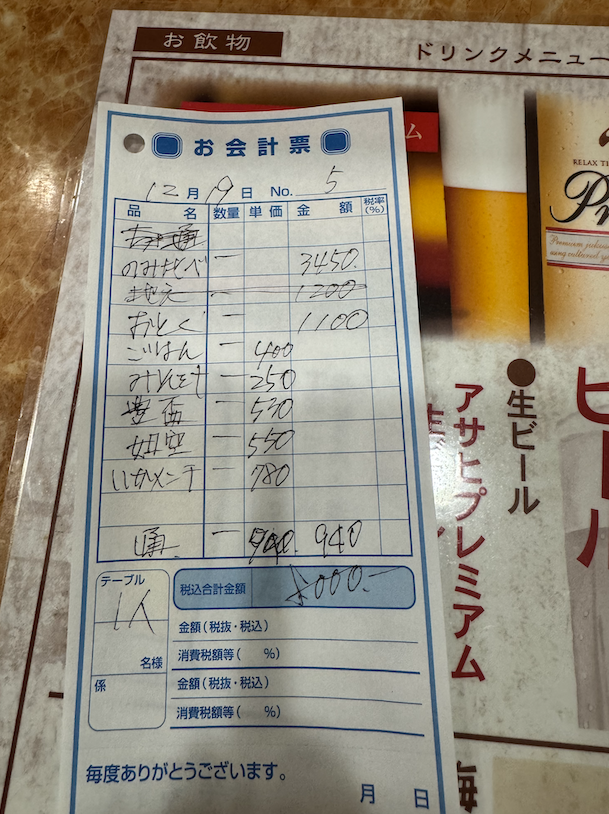 お飲物
ドリンクメニュー
ム
お会計票
12月19日 No. 5
品名 数量 単価 金額 税率(%)
のみ比べ 一 3450.
地元 一 1200
おとく 一 1100
ごはん 一 400
みそ汁 一 250
豊盃 一 530
如空 一 550
いかメンチ 一 780
通. 一 940. 940
テーブル
1人
名様
係
税込合計金額 8000.-
金額(税抜・税込)
消費税額等( %)
金額(税抜・税込)
消費税額等( %)
毎度ありがとうございます。
月 日
RELAX
Premium
●生ビール
アサヒプレミアム
生
ビール
梅